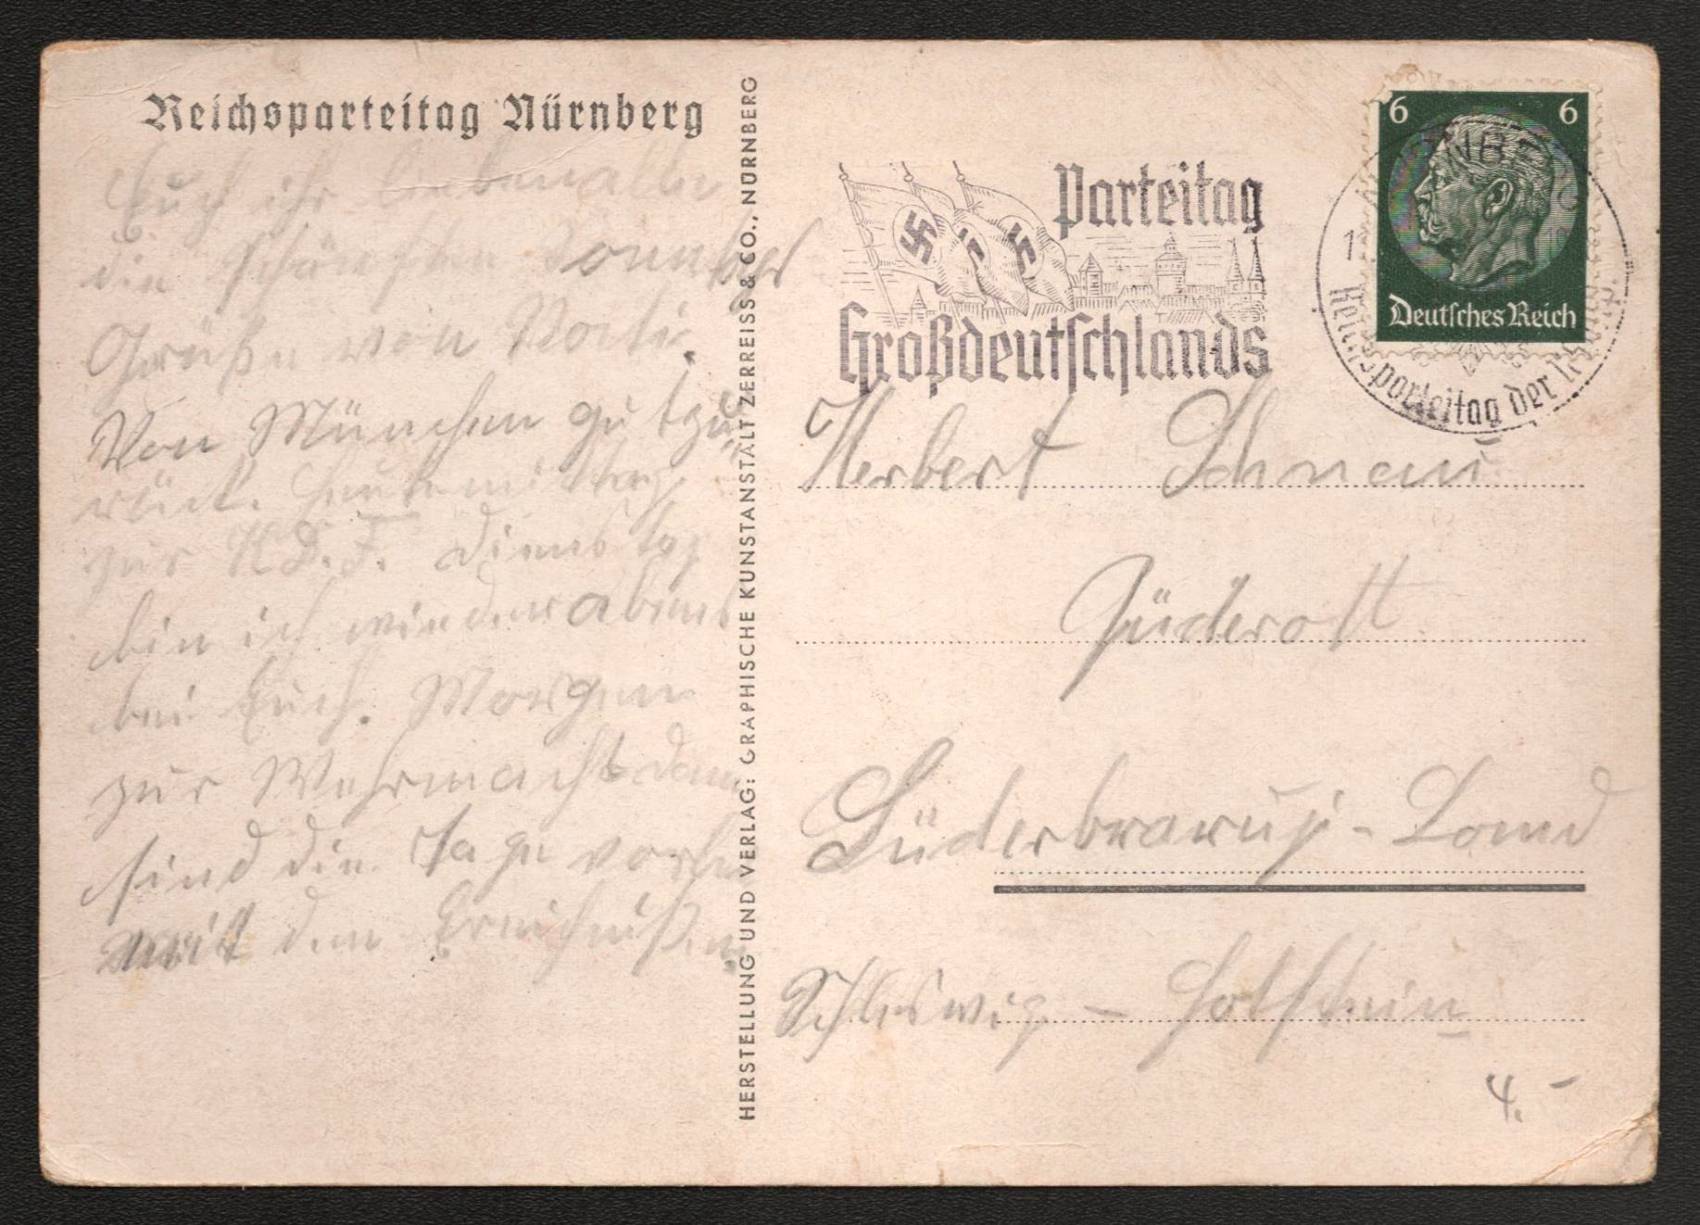 Reichsparteitag Nürnberg
Euch ihr Lieben alle
die schönsten Sonntags
Grüße von Vati.
Von München gut zu-
rück. Heute mittag
zur K.D.F. Dienstag
bin ich wieder abends
bei Euch. Morgen
zur Wehrmacht dann
sind die Tage vorbei
mit den Ereignißen.
HERSTELLUNG UND VERLAG: GRAPHISCHE KUNSTANSTALT ZERREISS & CO., NÜRNBERG
Parteitag
Großdeutschlands
6 6
Deutsches Reich
Reichsparteitag der
Herbert Schnau
Güderott
Süderbrarup-Land
Schleswig - Holstein
4.-